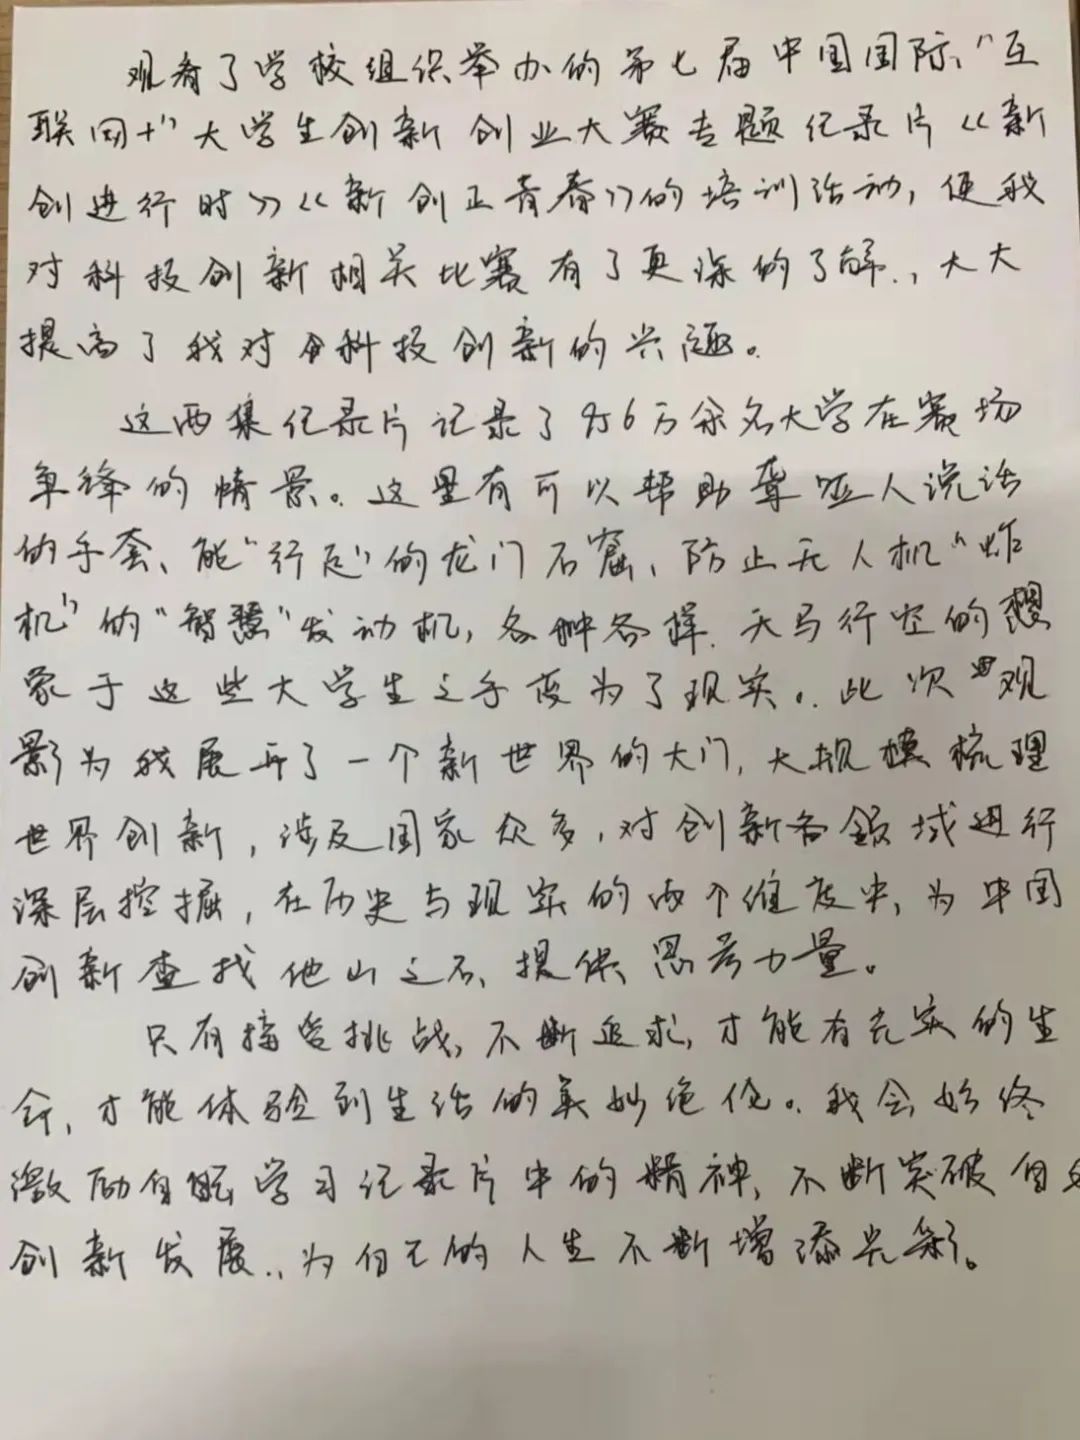 观看了学校组织举办的第七届中国国际“互
联网+”大学生创新创业大赛专题纪录片《新
创进行时》《新创正青春》的培训活动，使我
对科技创新相关比赛有了更深的了解，大大
提高了我对科技创新的兴趣。
这两集纪录片记录了956万余名大学在赛场
争锋的情景。这里有可以帮助聋哑人说话
的手套、能“行走”的龙门石窟、防止无人机“炸
机”的“智慧”发动机，各种各样、天马行空的想
象于这些大学生之手变为了现实。此次观
影为我展开了一个新世界的大门，大规模梳理
世界创新，涉及国家众多，对创新各领域进行
深层挖掘，在历史与现实的两个维度中，为中国
创新查找他山之石、提供思考力量。
只有接受挑战，不断追求，才能有充实的生
命，才能体验到生活的美妙绝伦。我会始终
激励自己学习纪录片中的精神，不断突破自
创新发展，为自己的人生不断增添光彩。